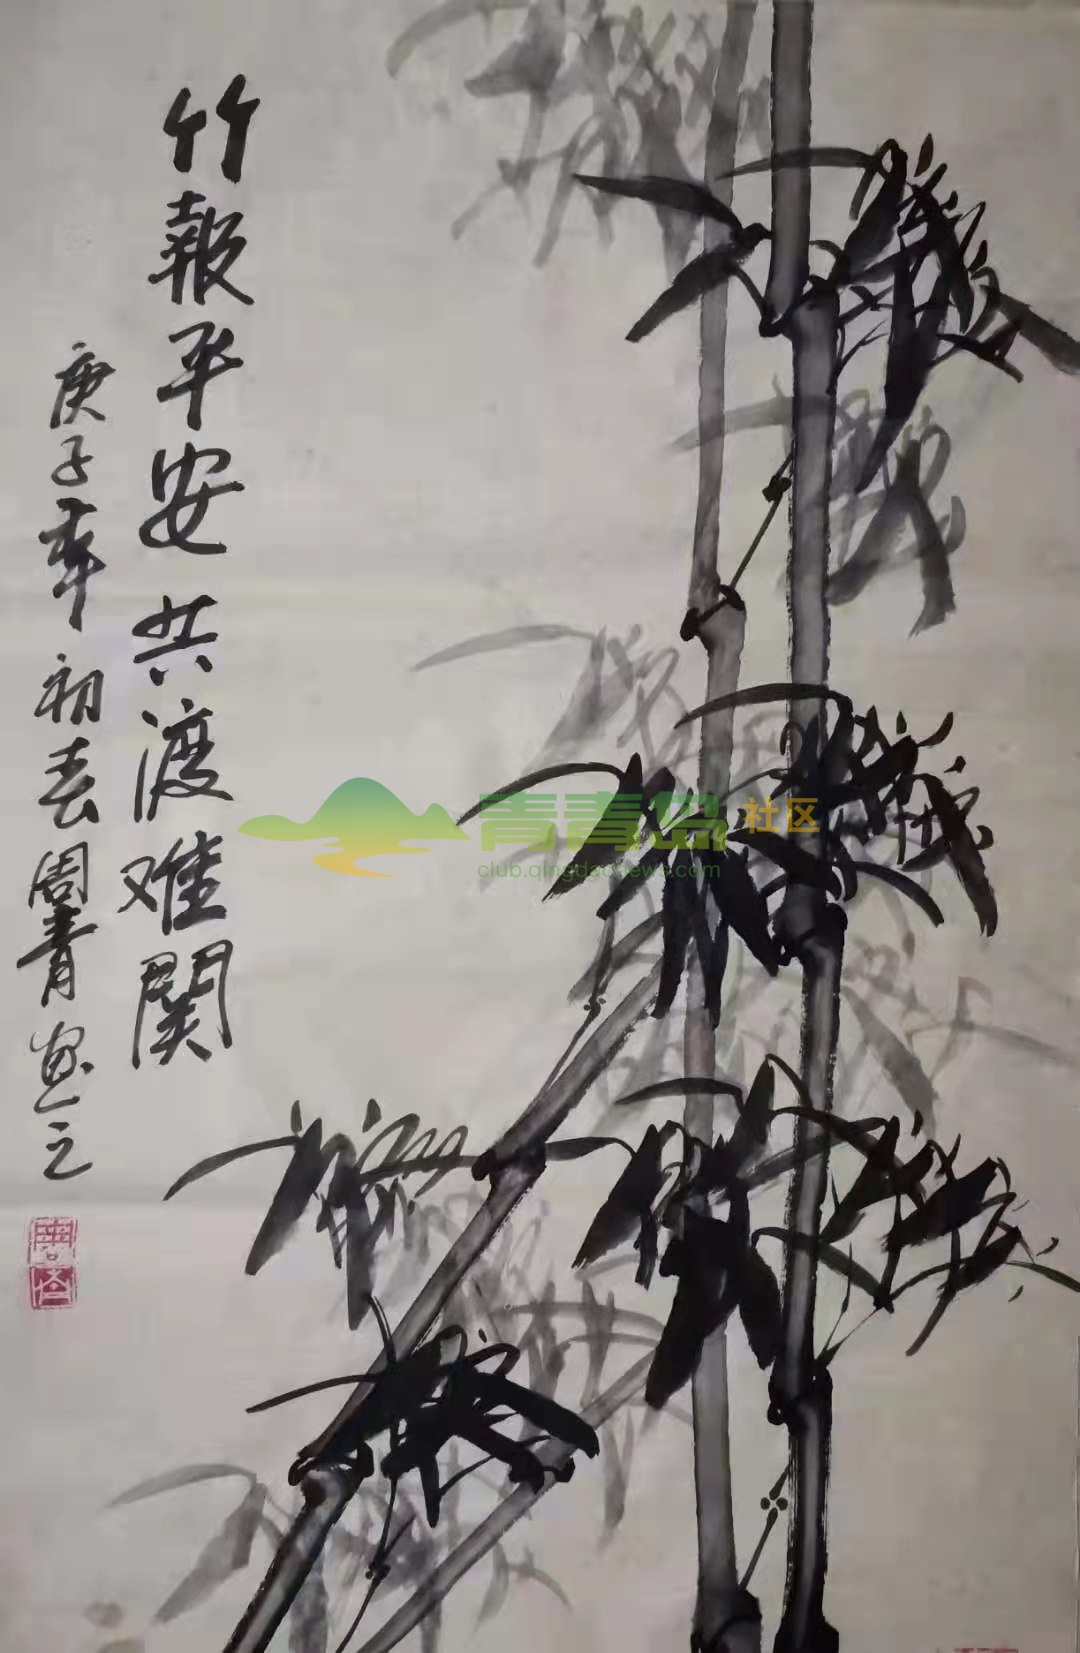 竹報平安共渡难関
庚子年初春周青画之
青青岛社区
club.qingdaonews.com